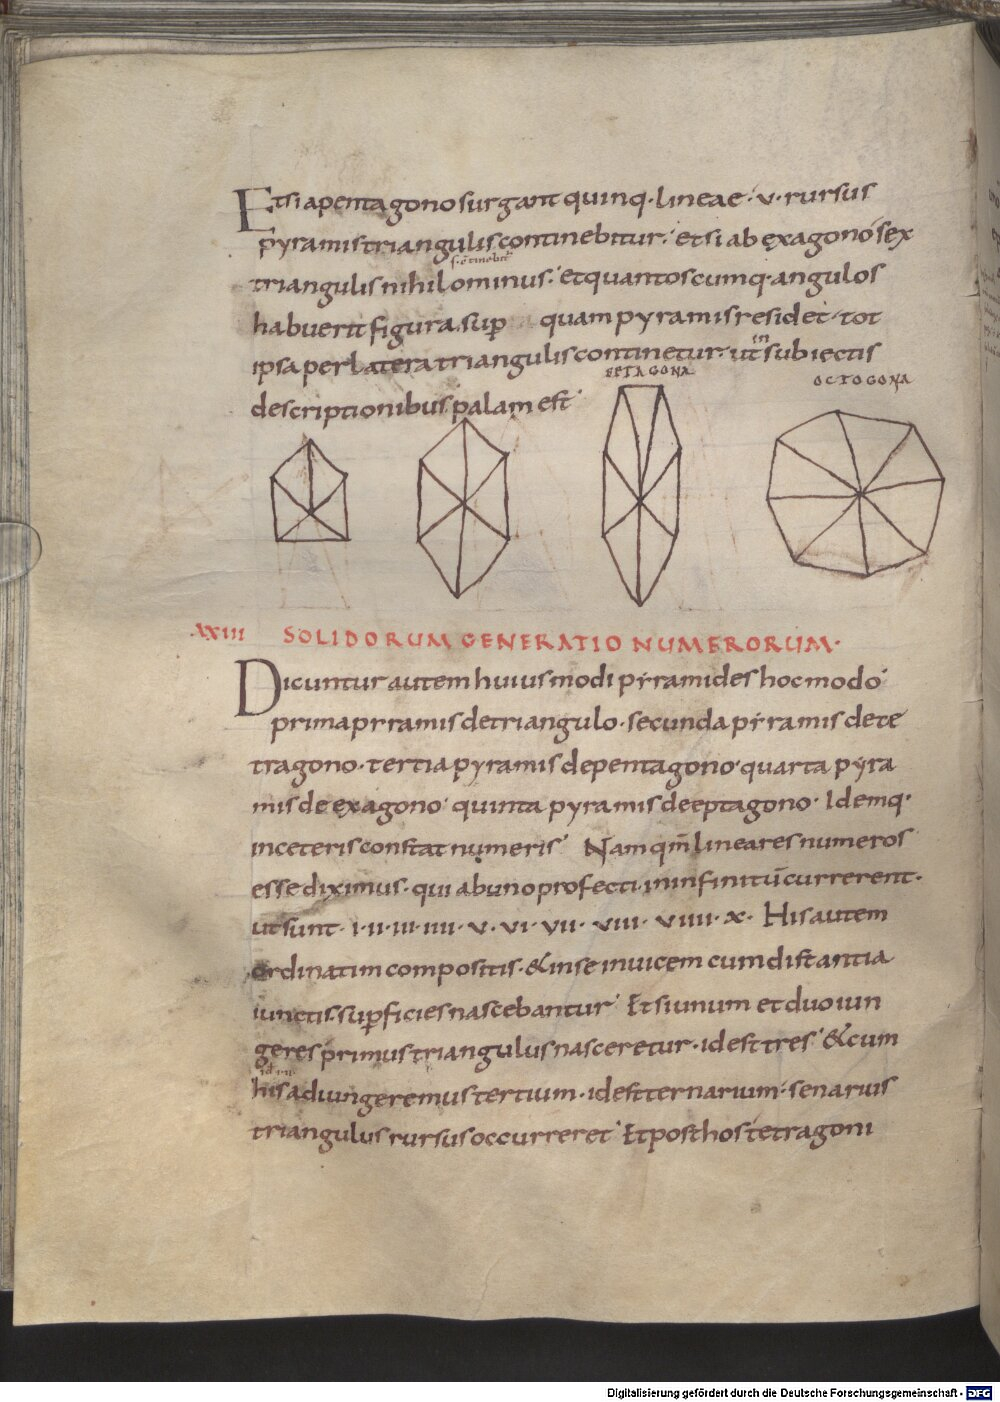 Et si a pentagono surgant quinq· lineae· v· rursus
pyramis triangulis continebitur· et si ab exagono sex
s. c̄tinebit̄
triangulis nihilominus· et quantoscumq· angulos
habuerit figura sup̱ quam pyramis residet· tot
ipsa per latera triangulis continetur· ut in subiectis
descriptionibus palam est·
EPTAGONA
OCTOGONA
XXIII SOLIDORUM GENERATIO NUMERORUM·
Dicuntur autem huius modi pẏramides hoc modo·
prima pẏramis de triangulo· secunda pẏramis de te
tragono· tertia pyramis de pentagono· quarta pẏra
mis de exagono· quinta pyramis de eptagono· Idemq·
in ceteris constat numeris· Nam qm̄ lineares numeros
esse diximus· qui ab uno profecti in infinitū currerent·
ut sunt· I· II· III· IIII· V· VI· VII· VIII· VIIII· X· His autem
ordinatim compositis· & in se inuicem cum distantia
iunctis sup̱ficies nascebantur· Et si unum et duo iun
geres primus triangulus nasceretur· id est tres· & cum
id· III
his adiungeremus tertium· id est ternarium· senarius
triangulus rursus occurreret· Et post hos tetragoni
Digitalisierung gefördert durch die Deutsche Forschungsgemeinschaft · DFG